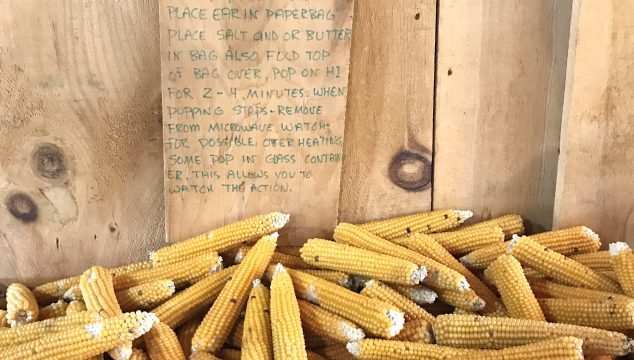 PLACE EAR IN PAPERBAG
PLACE SALT AND OR BUTTER
IN BAG ALSO, FOLD TOP
OF BAG OVER, POP ON HI
FOR 2-4 MINUTES, WHEN
POPPING STOPS-REMOVE
FROM MICROWAVE, WATCH
FOR POSSIBLE OVER HEATING,
SOME POP IN GLASS CONTAIN
ER. THIS ALLOWS YOU TO
WATCH THE ACTION.